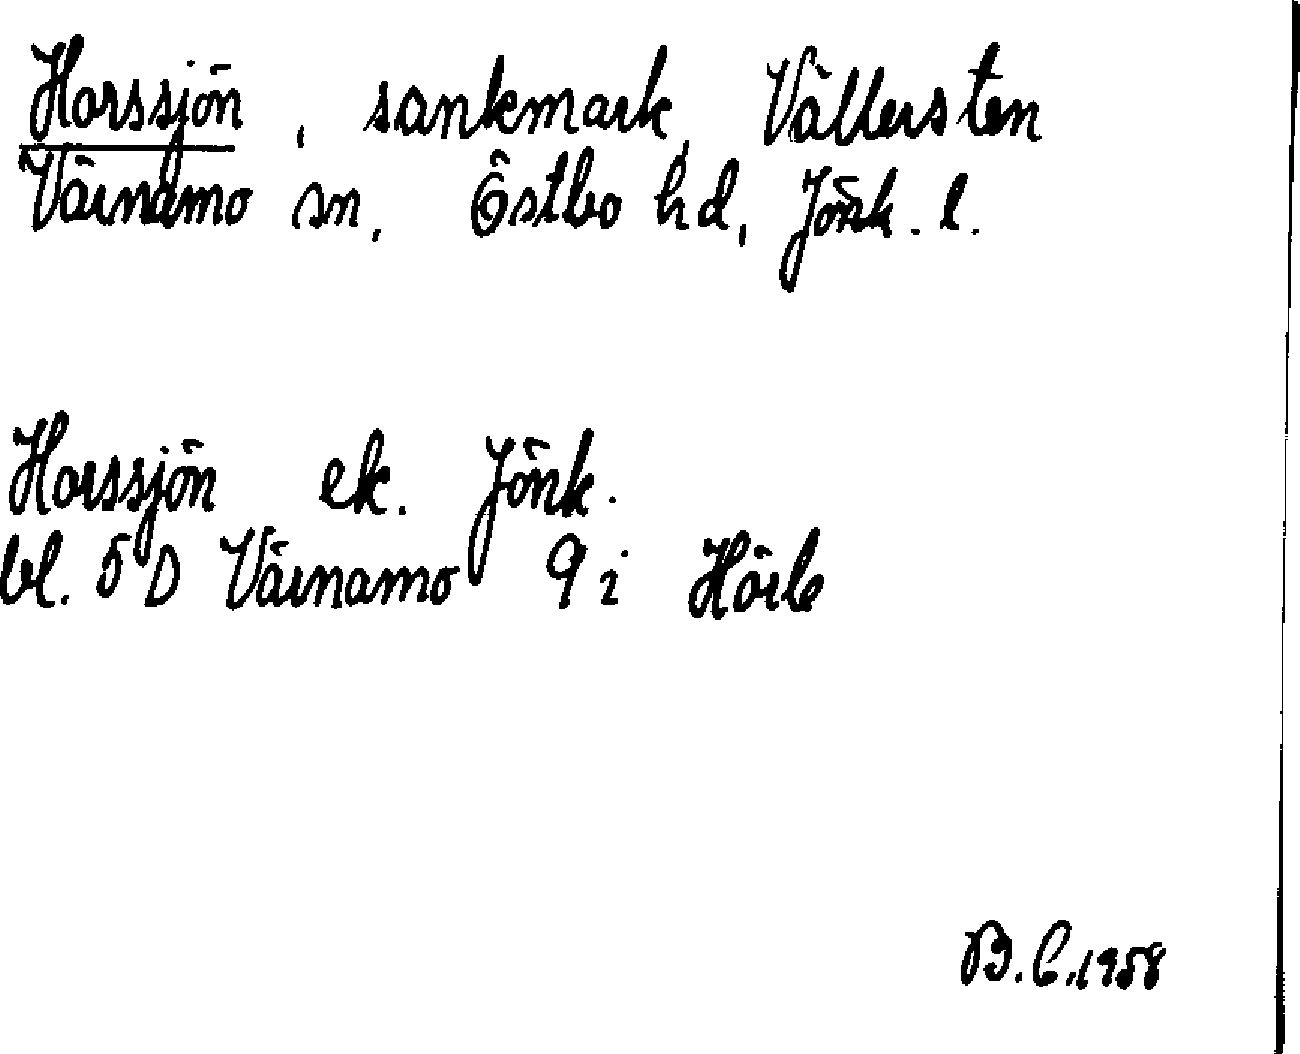 Horssjön, sankmark, Vällersten
Värnamo sn, Östbo hd, Jönk. l.
Horssjön ek. Jönk.
bl. 5 D Värnamo 9 i Hörle
B.C. 1958